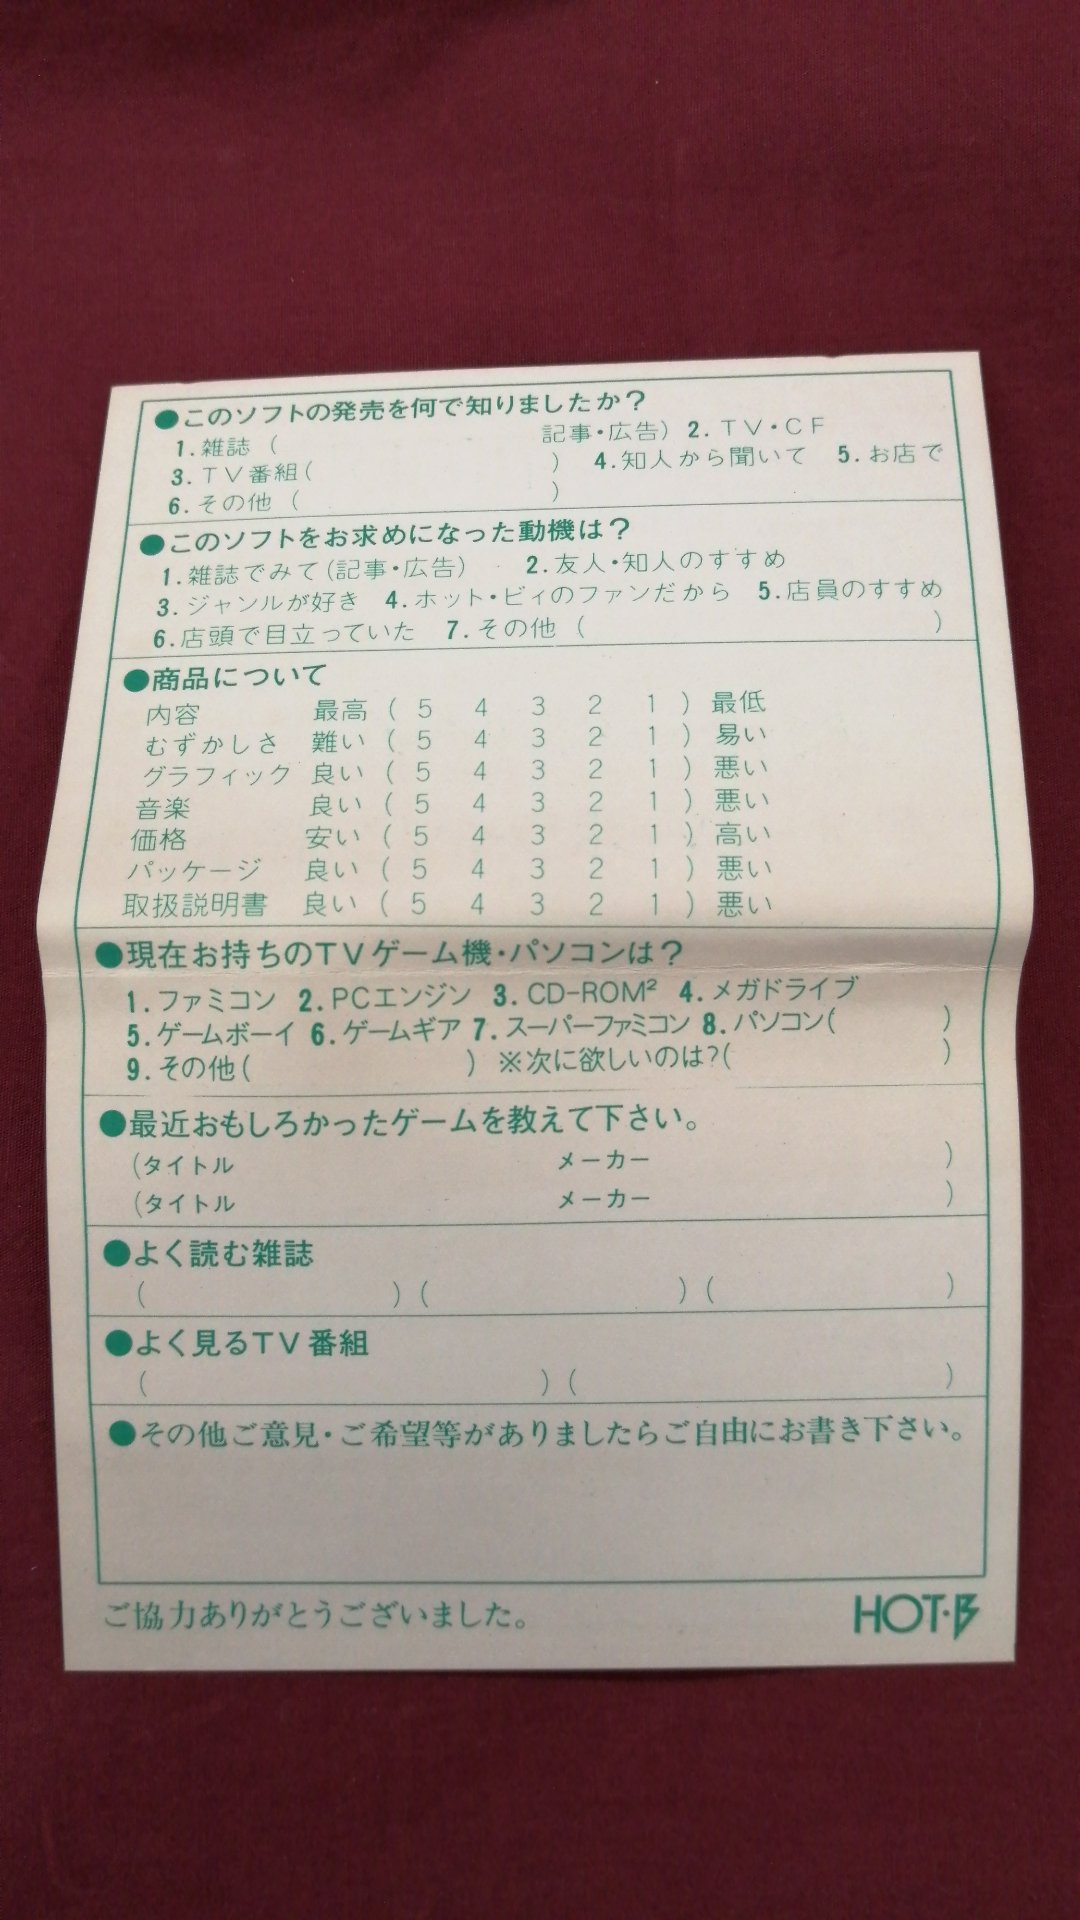 ●このソフトの発売を何で知りましたか？
1.雑誌（　　　　　記事・広告）2.ＴＶ・ＣＦ
3.ＴＶ番組（　　　　　）4.知人から聞いて　5.お店で
6.その他（　　　　　）
●このソフトをお求めになった動機は？
1.雑誌でみて（記事・広告）　2.友人・知人のすすめ
3.ジャンルが好き　4.ホット・ビィのファンだから　5.店員のすすめ
6.店頭で目立っていた　7.その他（　　　　　）
●商品について
内容　最高（５　４　３　２　１）最低
むずかしさ　難い（５　４　３　２　１）易い
グラフィック　良い（５　４　３　２　１）悪い
音楽　良い（５　４　３　２　１）悪い
価格　安い（５　４　３　２　１）高い
パッケージ　良い（５　４　３　２　１）悪い
取扱説明書　良い（５　４　３　２　１）悪い
●現在お持ちのＴＶゲーム機・パソコンは？
1.ファミコン　2.PCエンジン　3.CD-ROM²　4.メガドライブ
5.ゲームボーイ　6.ゲームギア　7.スーパーファミコン　8.パソコン（　　　　　）
9.その他（　　　　　）※次に欲しいのは？（　　　　　）
●最近おもしろかったゲームを教えて下さい。
（タイトル　　　　　メーカー　　　　　）
（タイトル　　　　　メーカー　　　　　）
●よく読む雑誌
（　　　　　）（　　　　　）（　　　　　）
●よく見るＴＶ番組
（　　　　　）（　　　　　）
●その他ご意見・ご希望等がありましたらご自由にお書き下さい。
ご協力ありがとうございました。　HOT・B